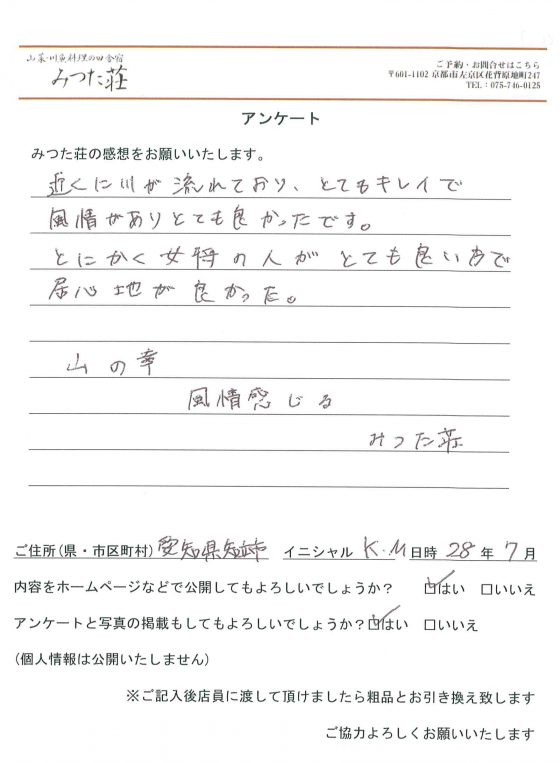 山菜・川魚料理の田舎宿
みつた荘
ご予約・お問合せはこちら
〒601-1102 京都市左京区花背原地町247
TEL：075-746-0125
アンケート
みつた荘の感想をお願いいたします。
近くに川が流れており、とてもキレイで
風情がありとても良かったです。
とにかく女将の人がとても良い方で
居心地が良かった。
山の幸
風情感じる
みつた荘
ご住所(県・市区町村) 愛知県知立市 イニシャル K.M 日時 28 年 7 月
内容をホームページなどで公開してもよろしいでしょうか？ ☑はい □いいえ
アンケートと写真の掲載もしてもよろしいでしょうか？☑はい □いいえ
(個人情報は公開いたしません)
※ご記入後店員に渡して頂けましたら粗品とお引き換え致します
ご協力よろしくお願いいたします